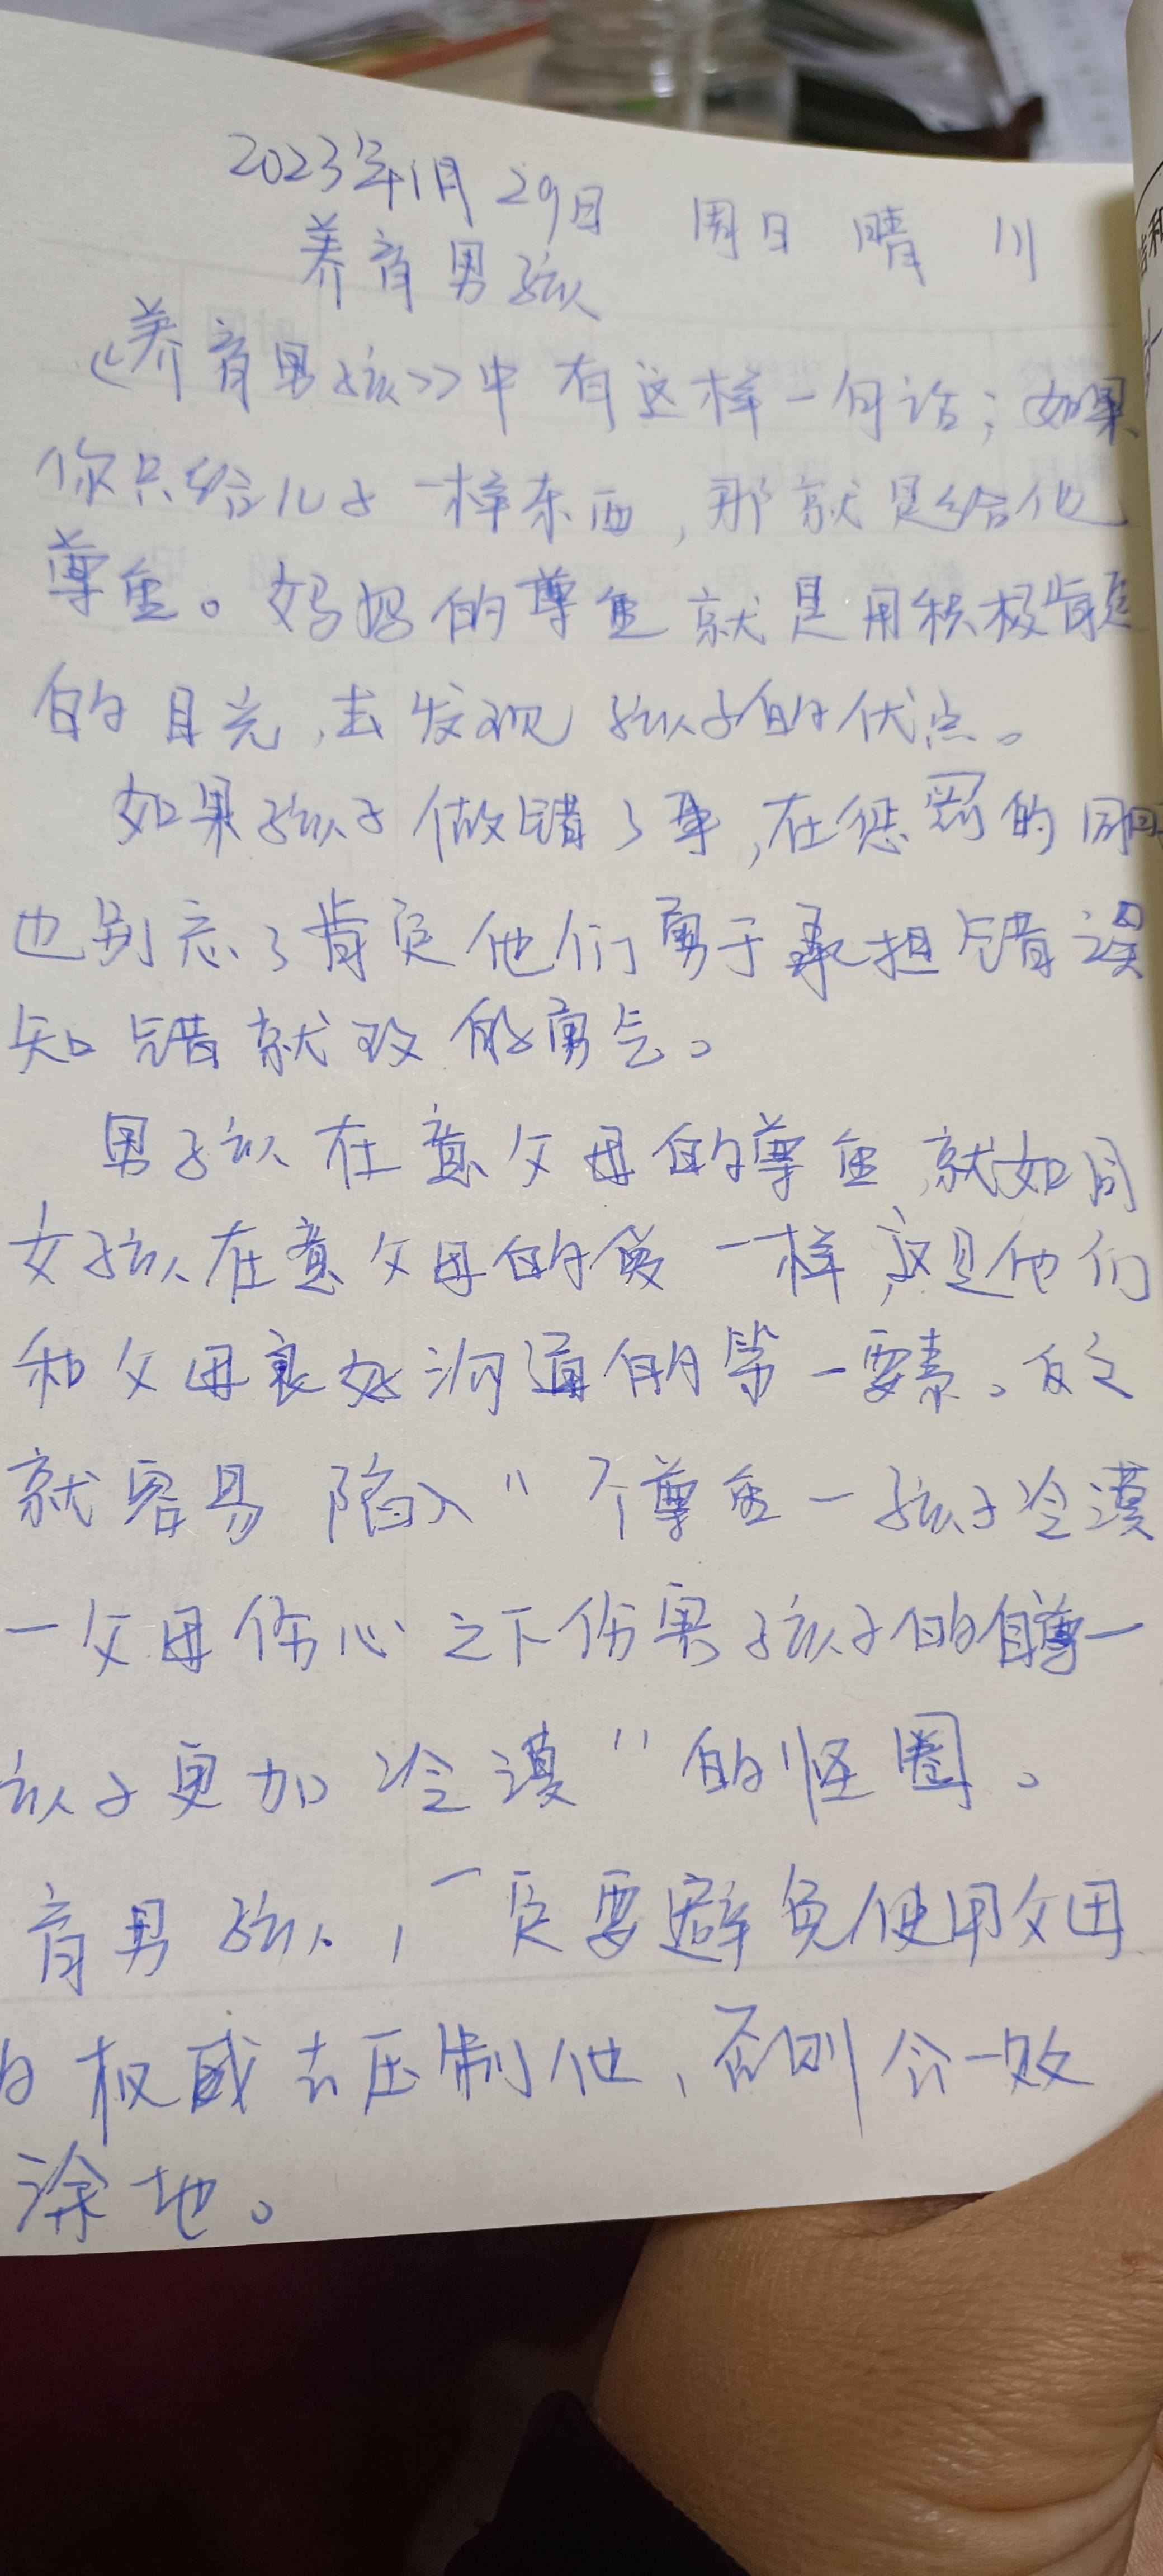 2023年1月29日 周日 晴 川
养育男孩
《养育男孩》中有这样一句话;如果
你只给儿子一样东西,那就是给他
尊重。妈妈的尊重就是用积极肯定
的目光,去发现孩子的优点。
如果孩子做错了事,在惩罚的同时
也别忘了肯定他们勇于承担错误
知错就改的勇气。
男孩在意父母的尊重,就如同
女孩在意父母的爱一样,这是他们
和父母良好沟通的第一要素。反之
就容易陷入"不尊重一孩子冷漠
一父母伤心之下伤害孩子的自尊一
孩子更加冷漠"的怪圈。
育男孩,一定要避免使用父母
的权威去压制他,否则会一败
涂地。